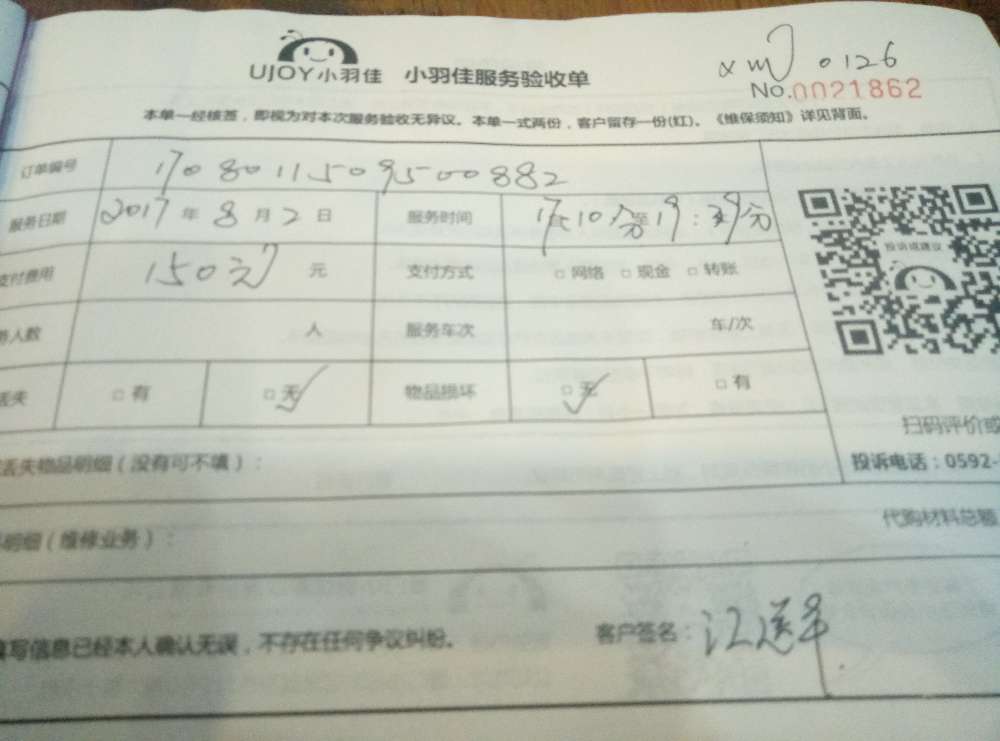 UJOY小羽佳 小羽佳服务验收单
xmJ 0126
No.0021862
本单一经核签，即视为对本次服务验收无异议。本单一式两份，客户留存一份(红)。《维保须知》详见背面。
订单编号 1708011509500882
服务日期 2017 年 8 月 2 日 服务时间 17 10分至19:39分
支付费用 150元 元 支付方式 □网络 □现金 □转账
务人数 人 服务车次 车/次
丢失 □有 □无 物品损坏 □无 □有
投诉或建议
扫码评价或
投诉电话：0592-
丢失物品明细（没有可不填）：
代购材料总额
明细（维修业务）：
填写信息已经本人确认无误，不存在任何争议纠纷。 客户签名：江